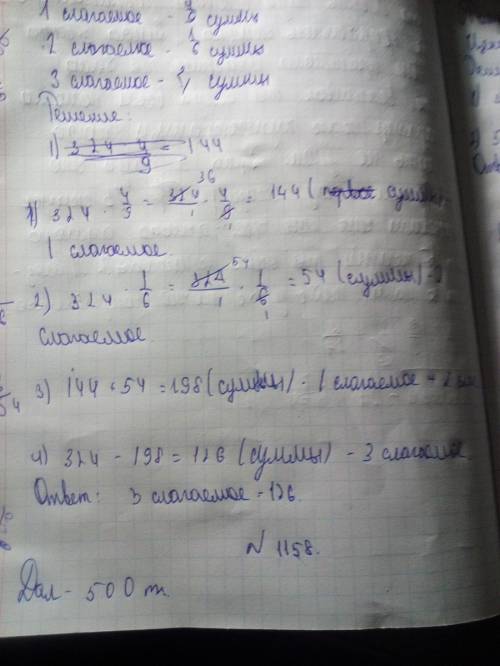 1 слагаемое - суммы
2 слагаемое - 1/6 суммы
3 слагаемое - ? суммы
Решение:
1) 324 4/9 = 144
1) 324 · 4/9 = 324/1 36 · 4/9 1 = 144 (первое суммы) -
1 слагаемое.
2) 324 · 1/6 = 324/1 54 · 1/6 1 = 54 (суммы) - 2
слагаемое.
3) 144 + 54 = 198 (суммы) - 1 слагаемое + 2
4) 324 - 198 = 126 (суммы) - 3 слагаемое.
Ответ: 3 слагаемое - 126.
N 1158.
Дал - 500 т.